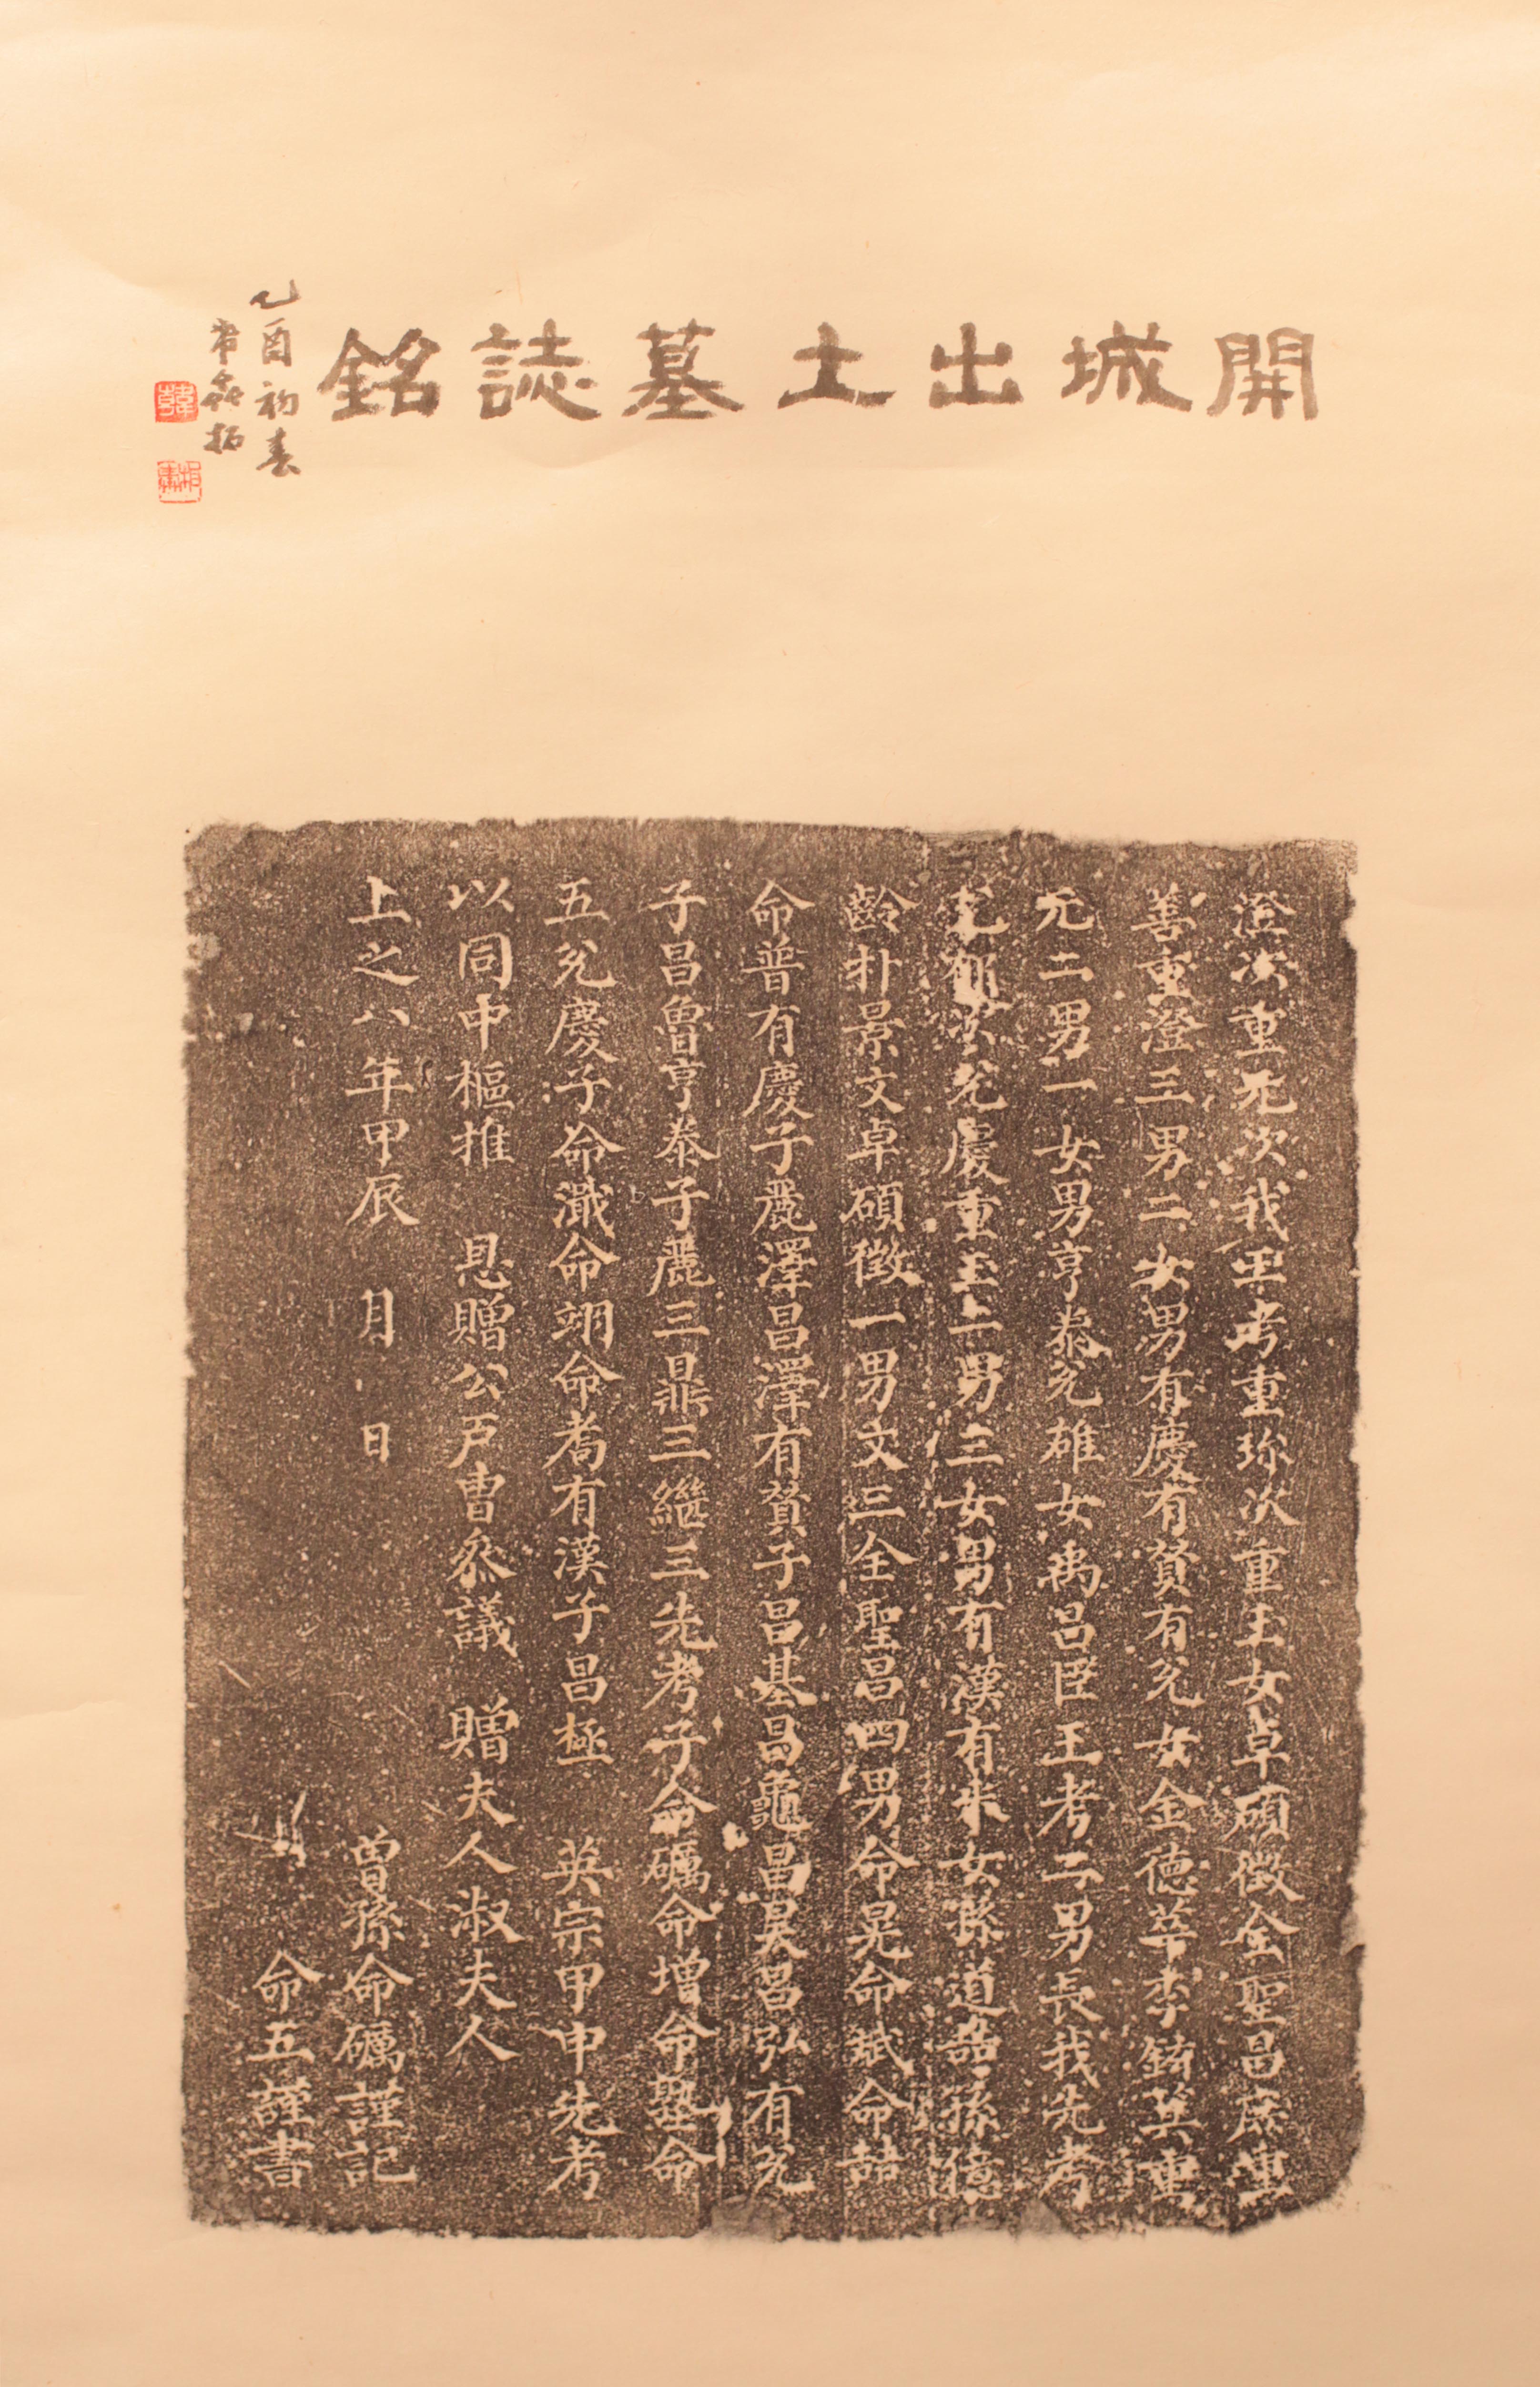 開城出土墓誌銘
乙酉初春
拓
澄次重元次我王考重珎次重玉女卓碩徵全聖昌虎重
善重澄三男二女男有慶有賛有兊女金德萃李錡英重
元二男一女男亨泰兊雄女禹呂臣王考二男長我先考
兊慶重玉二男三女男有漢有米女孫道喆孫億
齡朴景文卓碩徵一男文三全聖昌四男命晃命斌命喆
命普有慶子麗澤昌澤有賛子昌基昌龜昌昊昌弘有兊
子昌魯亨泰子麗三鼎三繼三先考子命礪命增命塾命
五兊慶子命瀐命翊命喬有漢子昌極 英宗甲申先考
以同中樞推 恩贈公戶曹叅議 贈夫人淑夫人
上之八年甲辰 月 日 曾孫命礪謹記
命五謹書